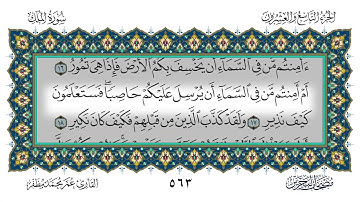 الجزء التاسع والعشرون
سورة الملك
ءَأَمِنتُم مَّن فِي السَّمَاءِ أَن يَخْسِفَ بِكُمُ الْأَرْضَ فَإِذَا هِيَ تَمُورُ ١٦
أَمْ أَمِنتُم مَّن فِي السَّمَاءِ أَن يُرْسِلَ عَلَيْكُمْ حَاصِبًا ۖ فَسَتَعْلَمُونَ
كَيْفَ نَذِيرِ ١٧ وَلَقَدْ كَذَّبَ الَّذِينَ مِن قَبْلِهِمْ فَكَيْفَ كَانَ نَكِيرِ ١٨
القارئ: عمر محمد مظفر
٥٦٣